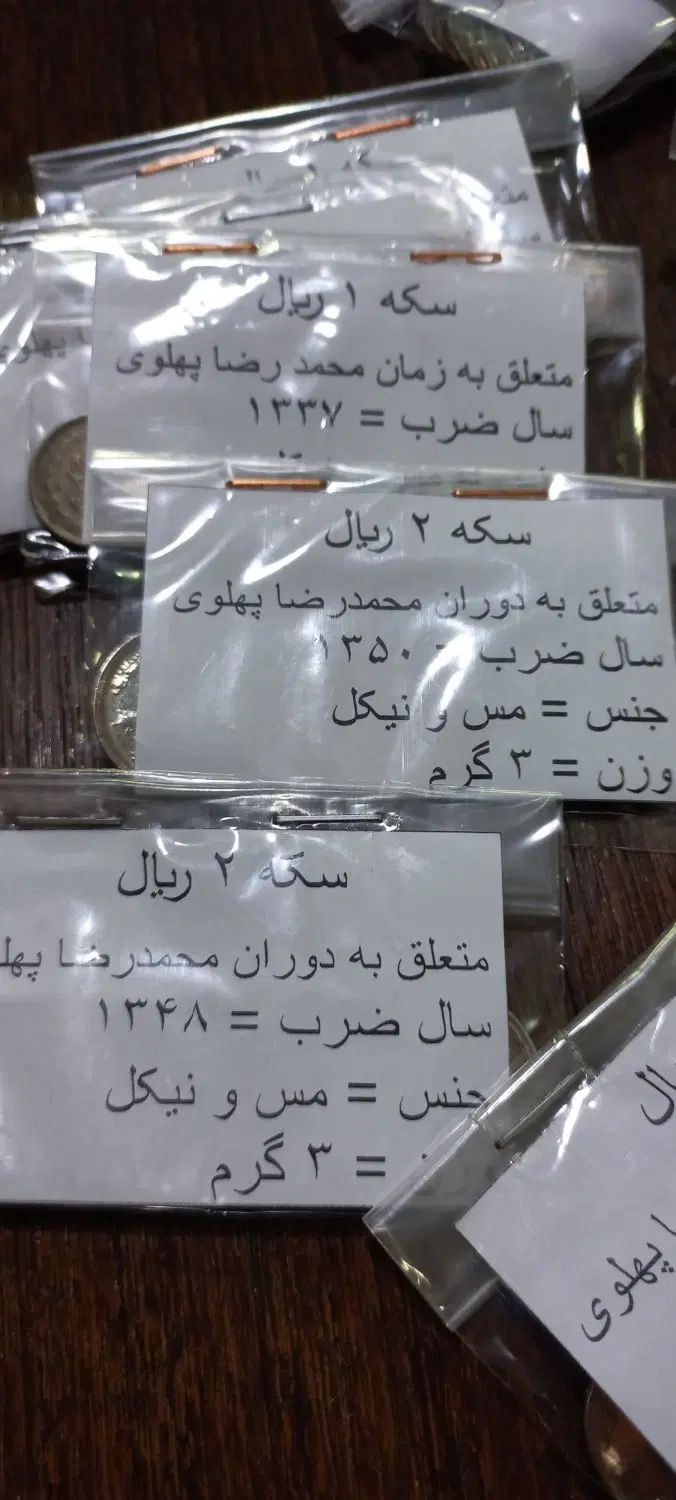 سکه ۱ ریال
متعلق به زمان محمد رضا پهلوی
سال ضرب = ۱۳۳۷
پهلوی
سکه ۲ ریال
متعلق به دوران محمدرضا پهلوی
سال ضرب = ۱۳۵۰
جنس = مس و نیکل
وزن = ۳ گرم
سکه ۲ ریال
متعلق به دوران محمدرضا پهل
سال ضرب = ۱۳۴۸
جنس = مس و نیکل
= ۳ گرم
ال
پهلوی